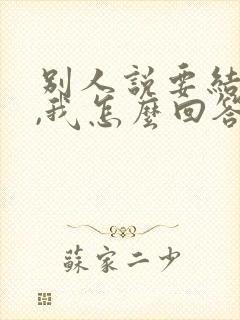 別人說要結
,我怎麼回答
蘇家二少